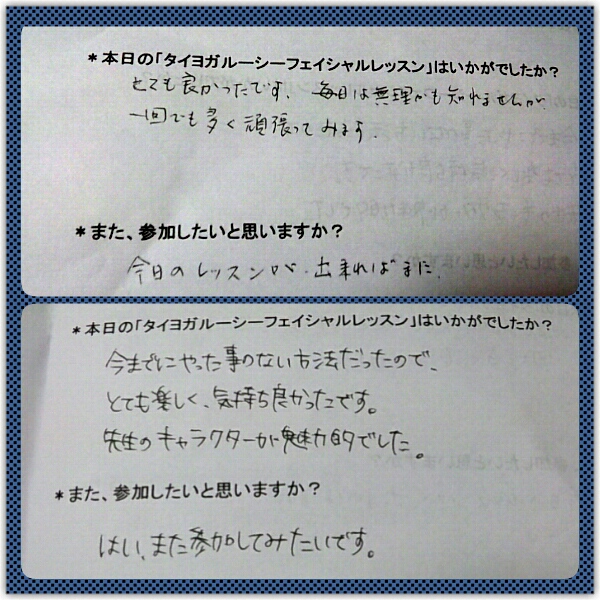 *本日の「タイヨガルーシーフェイシャルレッスン」はいかがでしたか?
とても良かったです. 毎日は無理かも知れませんが、
一回でも多く頑張ってみます.
*また、参加したいと思いますか?
今日のレッスンが、出来ればまた.
*本日の「タイヨガルーシーフェイシャルレッスン」はいかがでしたか?
今までにやった事のない方法だったので、
とても楽しく、気持ち良かったです。
先生のキャラクターが魅力的でした。
*また、参加したいと思いますか?
はい、また参加してみたいです。